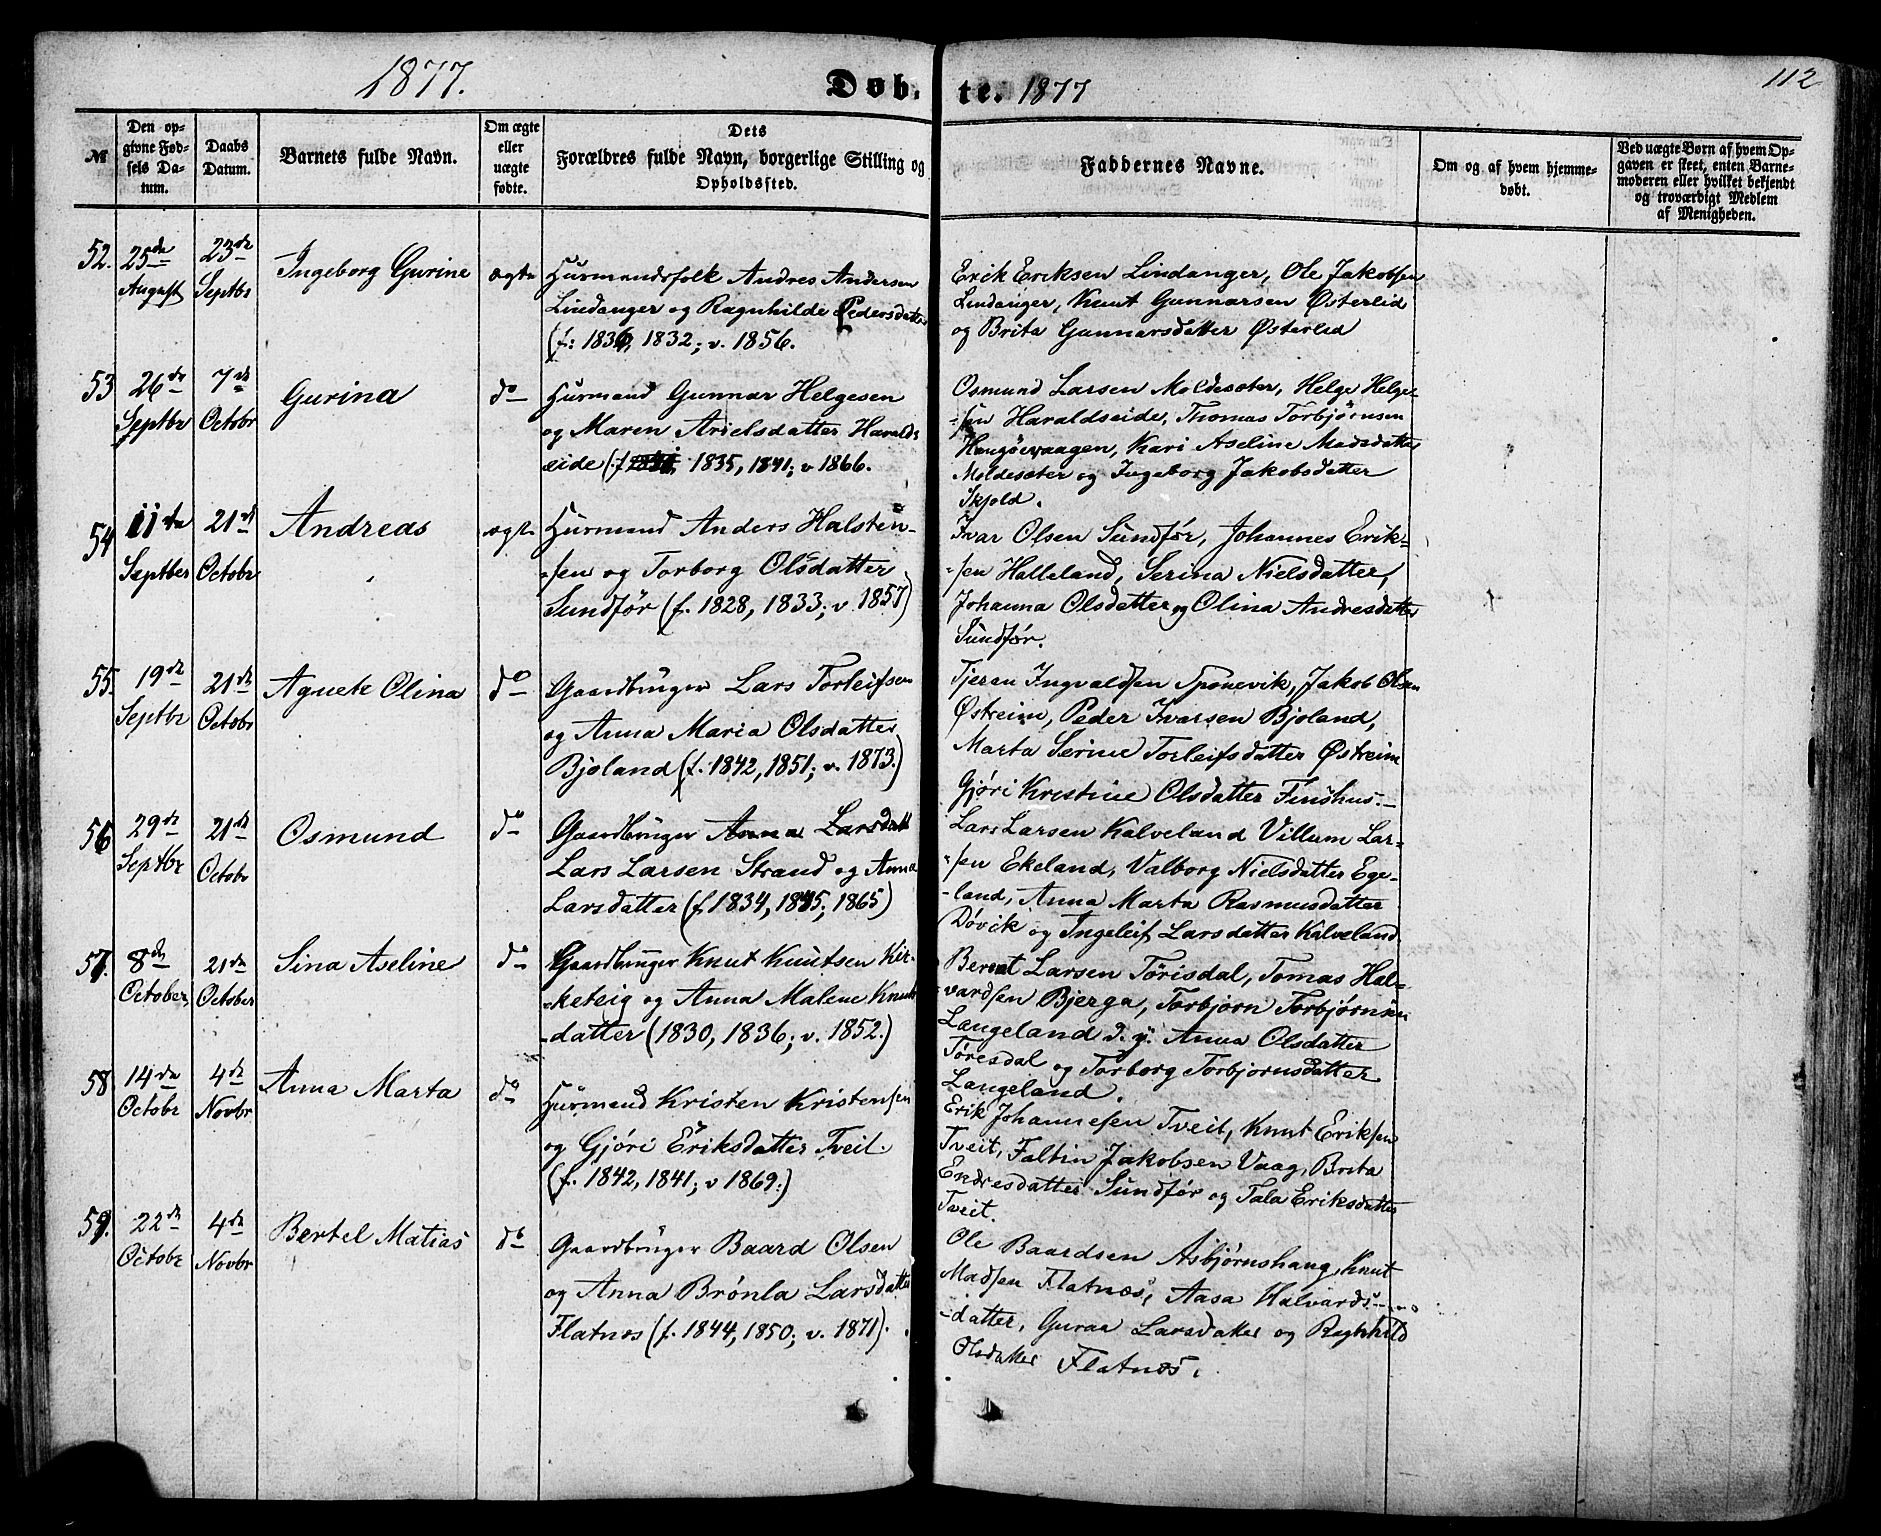 1877.
Døb-te. 1877
112
№
Den opgivne Fødsels Datum.
Daabs Datum.
Barnets fulde Navn.
Om ægte eller uægte fødte.
Dets Forældres fulde Navn, borgerlige Stilling og Opholdssted.
Faddernes Navne.
Om og af hvem hjemmedøbt.
Ved uægte Børn af hvem Opgaven er skeet, enten Barnemoderen eller hvilket bekjendt og troværdigt Medlem af Menigheden.
52. 25de August
23de Septbr
Ingeborg Gurine
ægte
Huusmandsfolk Andres Andersen
Lindanger og Ragnhilde Pedersdatter
(f: 1836, 1832; v. 1856.
Erik Eriksen Lindanger, Ole Jakobsen
Lindanger, Knut Gunnarsen Østerlid
og Brita Gunnarsdatter Østerlid
53 26de Septbr
7de Octobr
Gurina
do
Huusmand Gunnar Helgesen
og Maren Arielsdatter Haralds-
eide (f. 1835, 1841; v 1866.
Osmund Larsen Moldesæter, Helge Helge-
-sen Haraldseide, Thomas Torbjørnsen
Hougsevaagen, Kari Aseline Madsdatter
Moldesæter og Ingeborg Jakobsdatter
Skjold.
54 11te Septber
21de Octobr
Andreas
ægte
Huusmand Anders Halsten-
-sen og Torborg Olsdatter
Sundfør (f. 1828, 1833; v. 1857)
Ivar Olsen Sundfør, Johannes Erik-
-sen Halleland, Serina Nielsdatter,
Johanna Olsdatter og Olina Andresdatter
Sundfør.
55. 19de Septbr
21de Octobr
Agnete Olina
do
Gaardbruger Lars Torleifsen
og Anna Maria Olsdatter
Bjoland (f. 1842, 1851; v. 1873.)
Tjeran Ingvaldsen Sponevik, Jakob Olsen
Østreim, Peder Ivarsen Bjoland,
Marta Serine Torleifsdatter Østreim
Gjøri Kristine Olsdatter Finshus.-
56 29de Septbr
21de Octobr
Osmund
do
Gaardbruger Anna Larsdatt
Lars Larsen Strand og Anna
Larsdatter (f. 1834, 1845; 1865)
Lars Larsen Kalveland Villum Lar-
-sen Ekeland, Valborg Nielsdatter Ege-
-land, Anna Marta Rasmusdatter
Døvik og Ingeleif Larsdatter Kalveland
57. 8de October,
21de October
Sina Aseline
do
Gaardbruger Knut Knutsen Kir-
-keteig og Anna Malene Knuts-
-datter (1830, 1836; v. 1852.)
Berent Larsen Tørisdal, Tomas Hal-
-vardsen Bjerga, Torbjørn Torbjørnsen
Langeland d. y. Anna Olsdatter
Tøresdal og Torborg Torbjørnsdatter
Langeland.
58 14de Octobr
4de Novbr
Anna Marta
do
Huusmand Kristen Kristensen
og Gjøri Eriksdatter Tveit
(f. 1842, 1841; v 1869.)
Erik Johannesen Tveit, Knut Eriksen
Tveit, Faltin Jakobsen Vaag, Brita
Endresdatter Sundfør og Tala Eriksdatter
Tveit.
59. 22de Octobr
4de Novbr
Bertel Matias
do
Gaardbruger Baard Olsen
og Anna Brønla Larsdatter
Flatnes (f. 1844, 1850; v. 1871).
Ole Baardsen Asbjørnshaug, Knut
Madsen Flatnes, Aasa Halvards-
-datter, Guraa Larsdatter og Ragnhild
Olsdatter Flatnes.